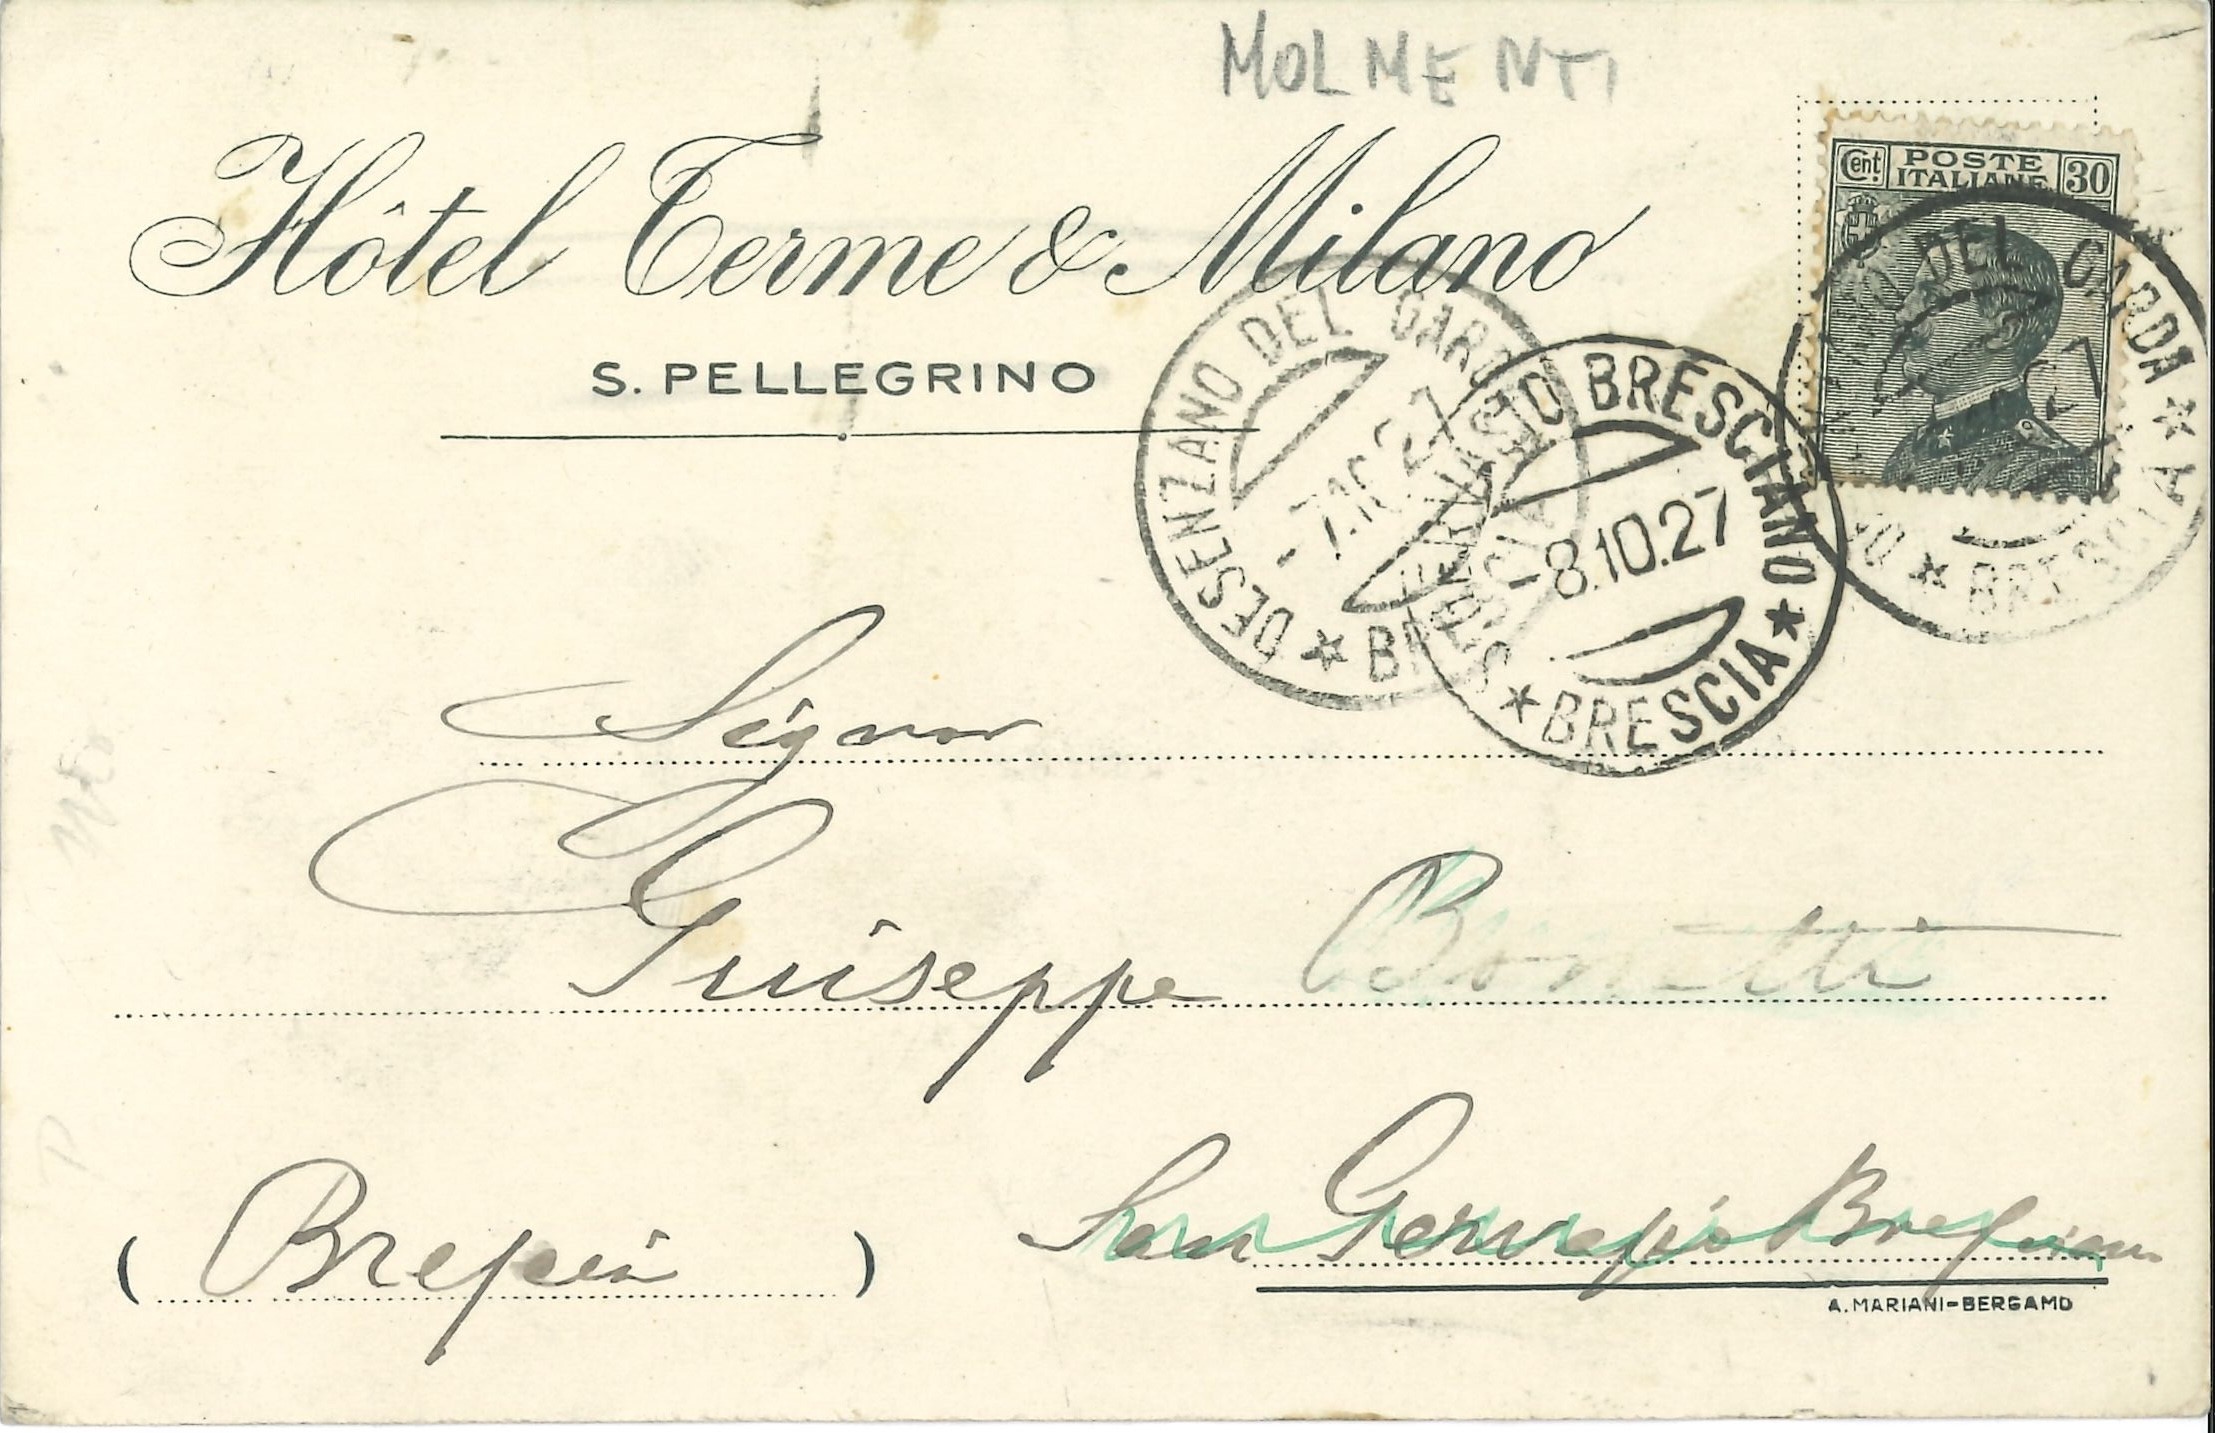 MOLMENTI
Hôtel Terme & Milano
S. PELLEGRINO
Cent. POSTE ITALIANE 30
DESENZANO DEL GARDA ★ BRESCIA ★
-7.10.27
S. GERVASIO BRESCIANO ★ BRESCIA ★
-8.10.27
DEL GARDA ★ BRESCIA ★
27
Signor
Giuseppe Bonetti
San Gervasio Bresciano
( Brescia )
A. MARIANI-BERGAMO